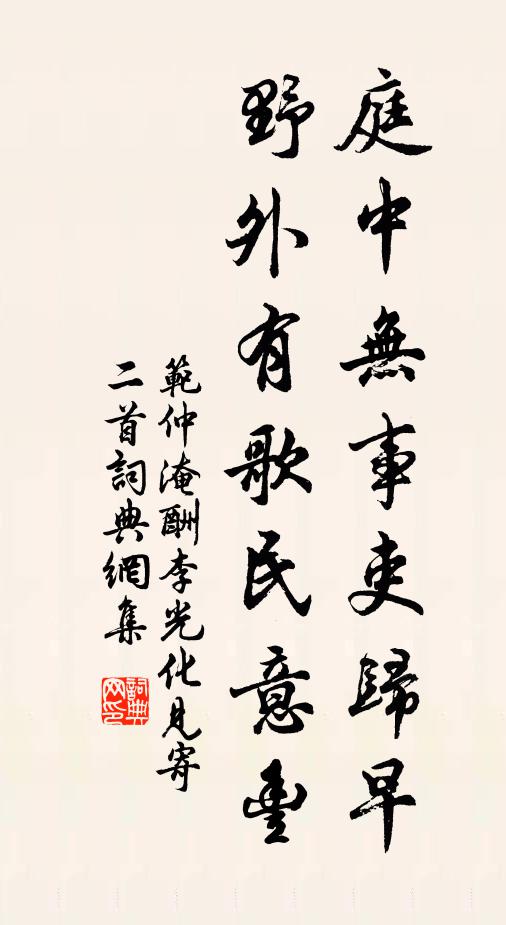 庭中無事吏歸早
野外有歌民意豐
範仲淹酬李光化見寄
二首詞典網集
詞典网印